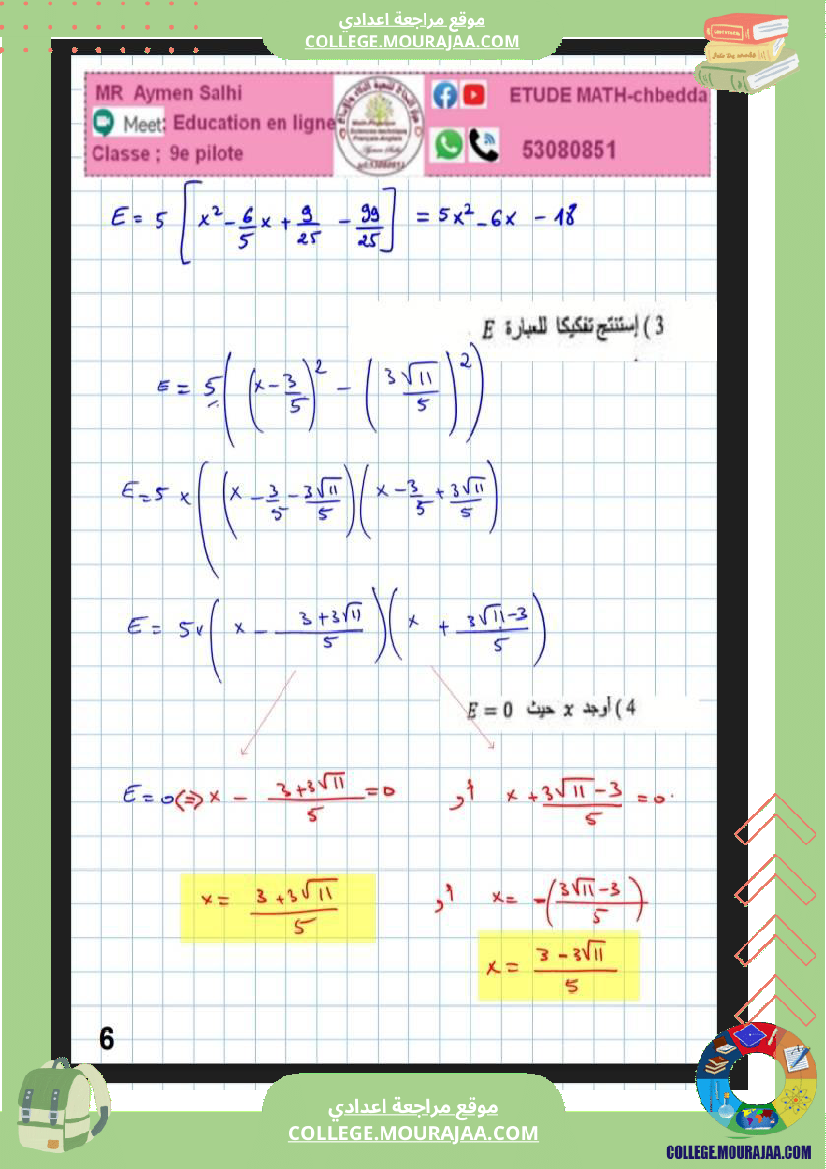 موقع مراجعة اعدادي
COLLEGE.MOURAJAA.COM
MR Aymen Salhi
Meet: Education en ligne
Classe ; 9e pilote
ETUDE MATH-chbedda
53080851
E = 5 [x² - 6/5 x + 9/25 - 99/25] = 5x² - 6x - 18
3 ) إستنتج تفكيكا للعبارة E
E = 5((x - 3/5)² - (3√11/5)²)
E = 5 x ((x - 3/5 - 3√11/5)(x - 3/5 + 3√11/5)
E = 5x(x - 3+3√11/5)(x + 3√11-3/5)
4 ) أوجد x حيث E = 0
E = 0 <=> x - 3+3√11/5 = 0 أو x + 3√11-3/5 = 0
x = 3+3√11/5 أو x = -(3√11-3/5)
x = 3-3√11/5
6
موقع مراجعة اعدادي
COLLEGE.MOURAJAA.COM
COLLEGE.MOURAJAA.COM